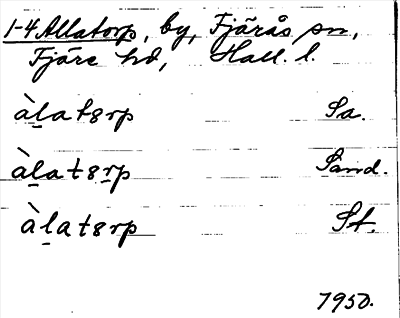 1-4 Allatorp, by, Fjärås sn,
Fjäre hd, Hall. l.
àlatɜrp Sa.
àlatɜrp Sand.
àlatɜrp St.
1950.